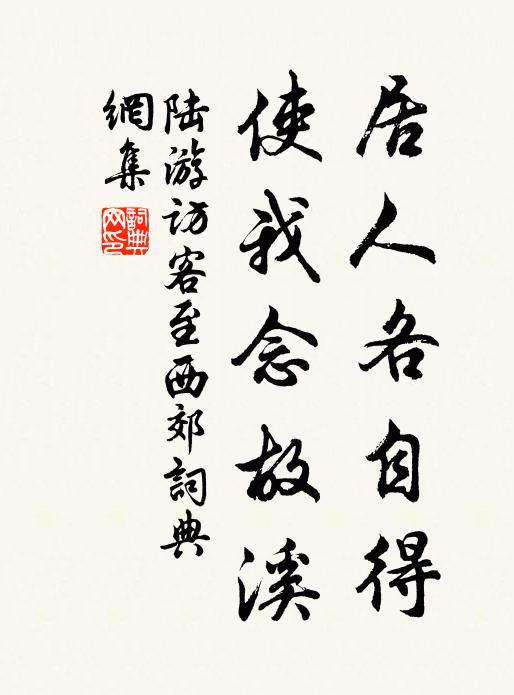 居人各自得
使我念故溪
陆游访客至西郊詞典
網集
詞典
网印